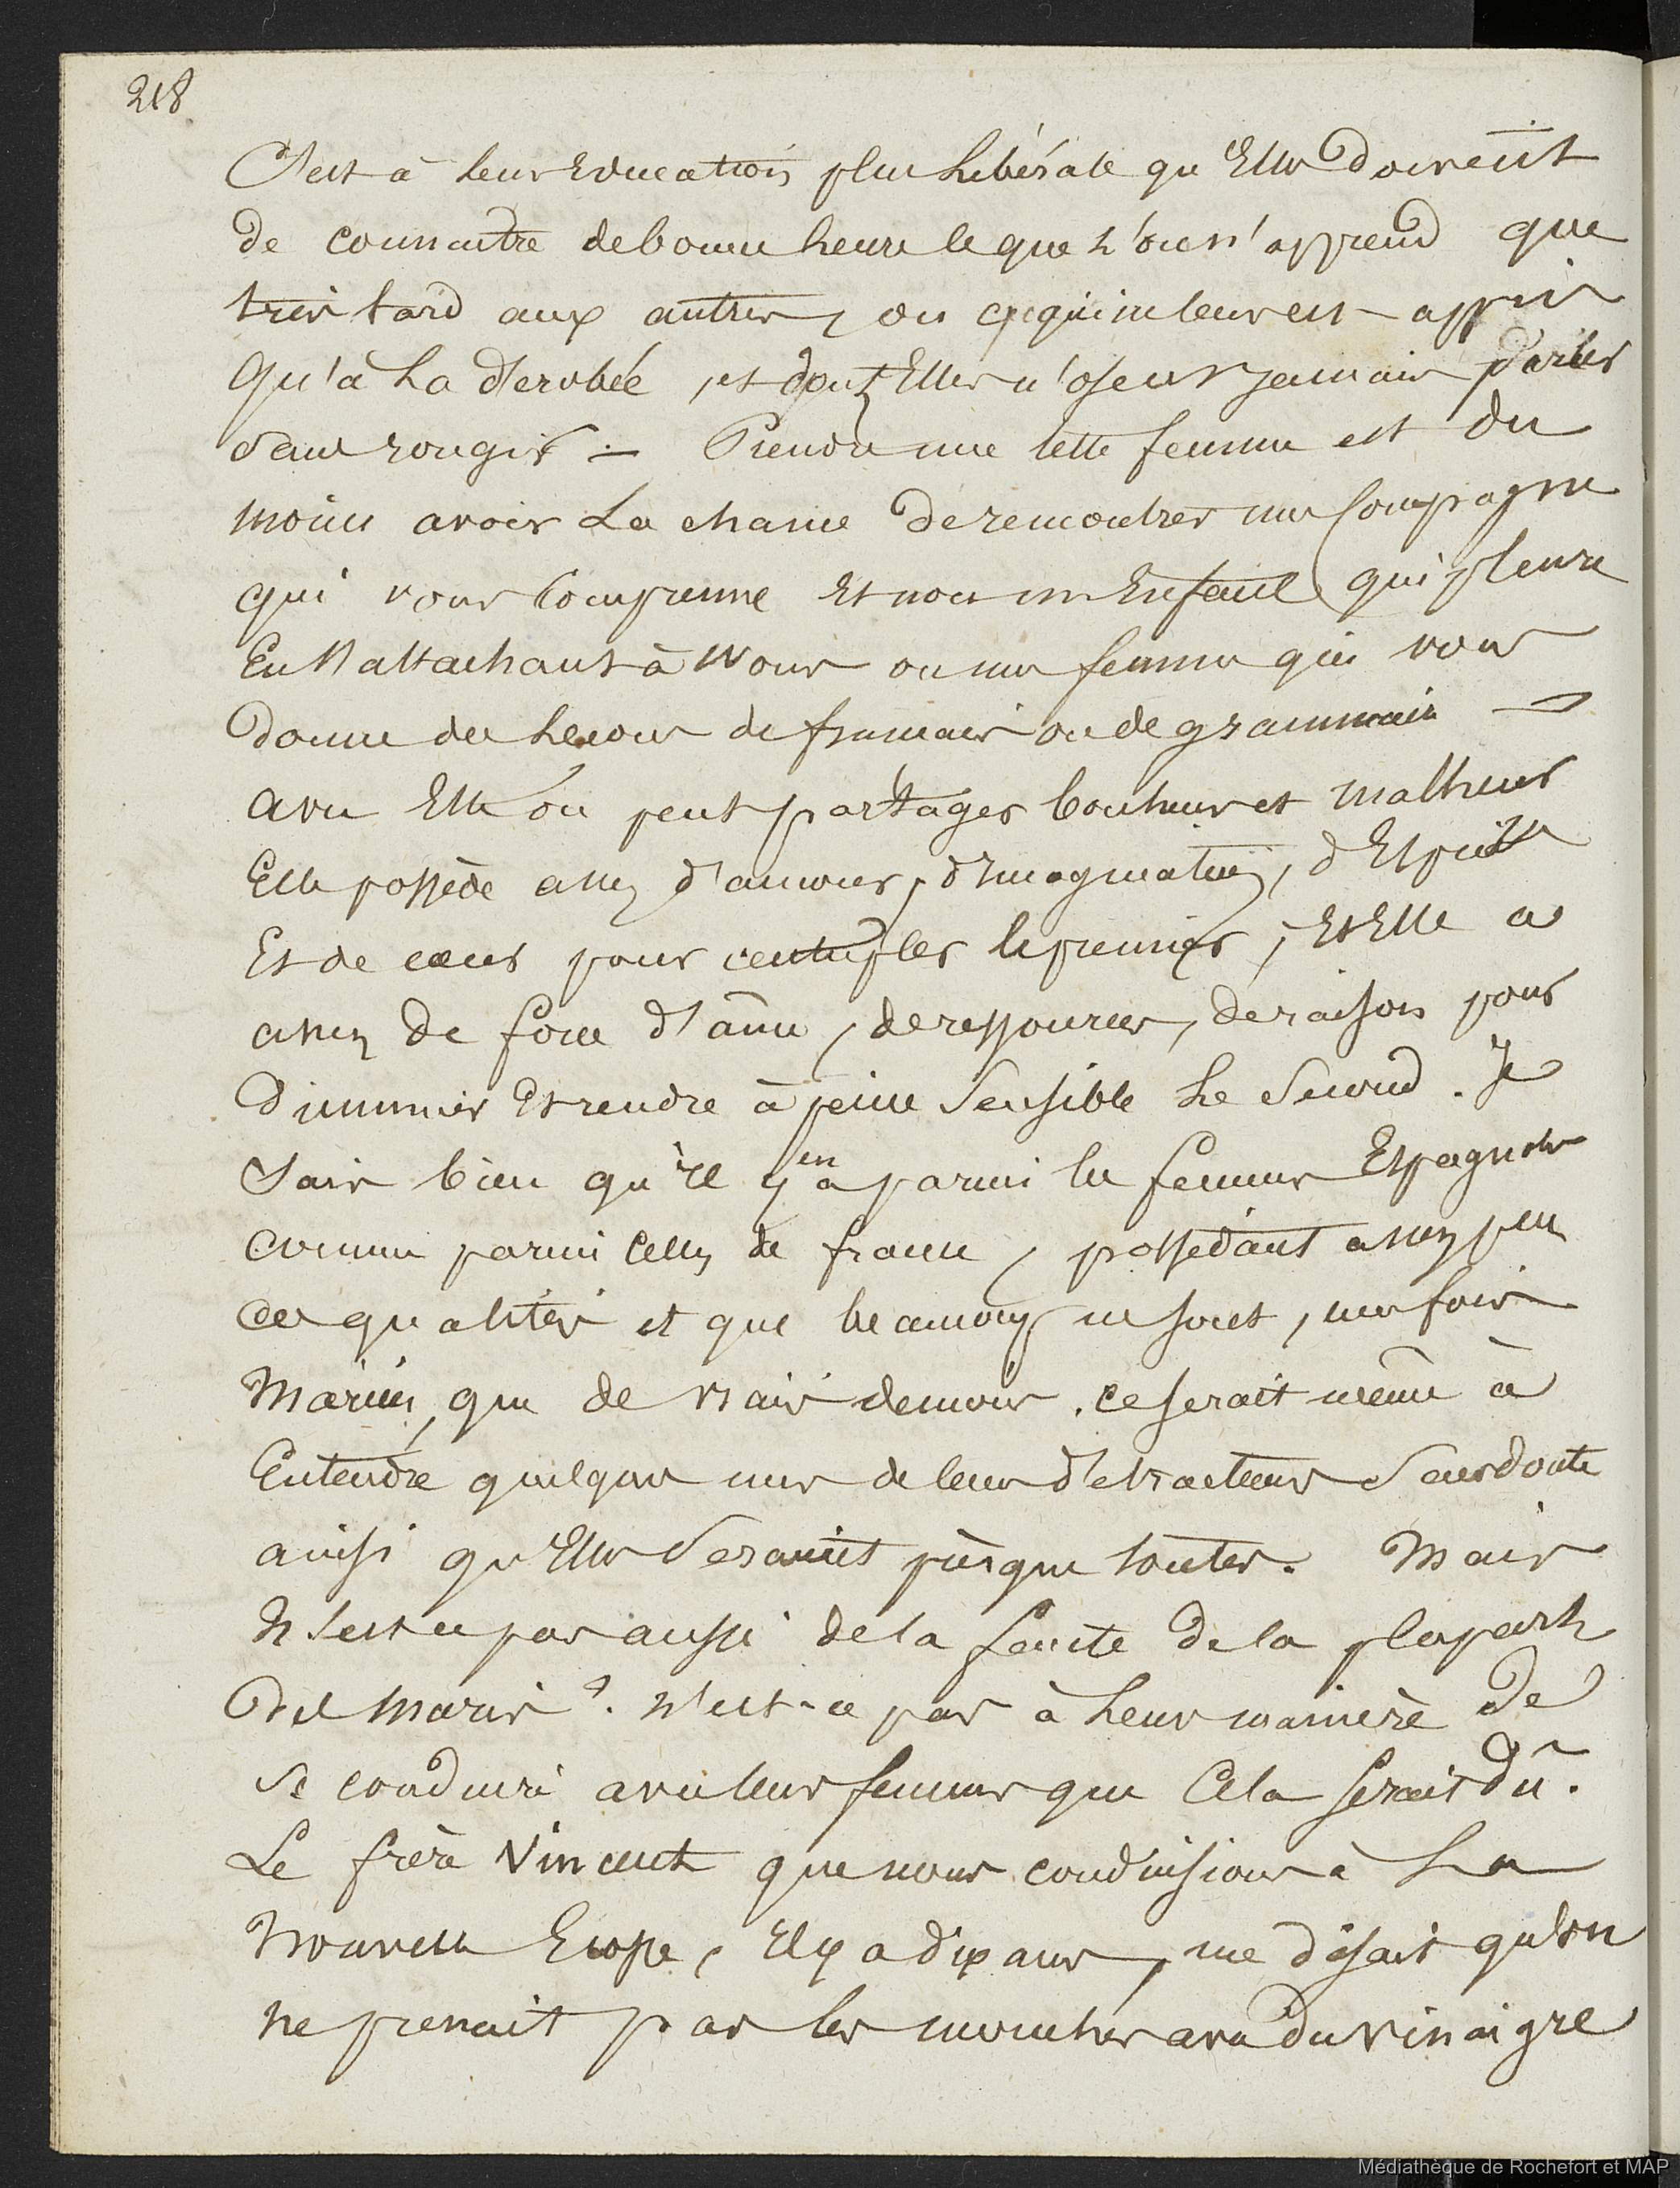 218
C'est à leur Education plus Libérale qu'Elles doivent
de connaitre de bonne heure ce que l'on n'apprend que
très tard aux autres, ou ce qui ne leur est appris
Qu'à La dérobée, et dont Elles n'osent jamais parler
Sans rougir. — Prendre une telle femme est du
moins avoir La chance de rencontrer une Compagne
qui vous Comprenne Et non un Enfant qui pleure
En s'attachant à Vous ou une femme qui vous
donne des Leçons de français ou de grammaire —
avec Elle on peut partager bonheur et malheur
Elle possède assez d'amour, d'Imagination, d'Esprit
Et de cœur pour centupler le premier, Et Elle a
assez de force d'âme, de ressources, de raison pour
diminuer Et rendre à peine Sensible Le Second. Je
Sais bien qu'il y en a parmi les femmes Espagnoles
comme parmi Celles de france, possédant assez peu
ces qualités et que beaucoup ne sont, une fois
Mariées, que de vrais démons. Ce serait même à
Entendre quelques uns de leurs détracteurs Sans doute
ainsi qu'Elles Seraient presque toutes. Mais
N'est ce pas aussi de la faute de la plupart
des Maris ? N'est-ce pas à Leur manière de
se conduire avec leurs femmes que Cela serait dû.
Le frère Vincent que nous conduisions à La
Nouvelle Ecosse, Il y a dix ans, me disait qu'on
ne prenait pas les mouches avec du vinaigre
Médiathèque de Rochefort et MAP